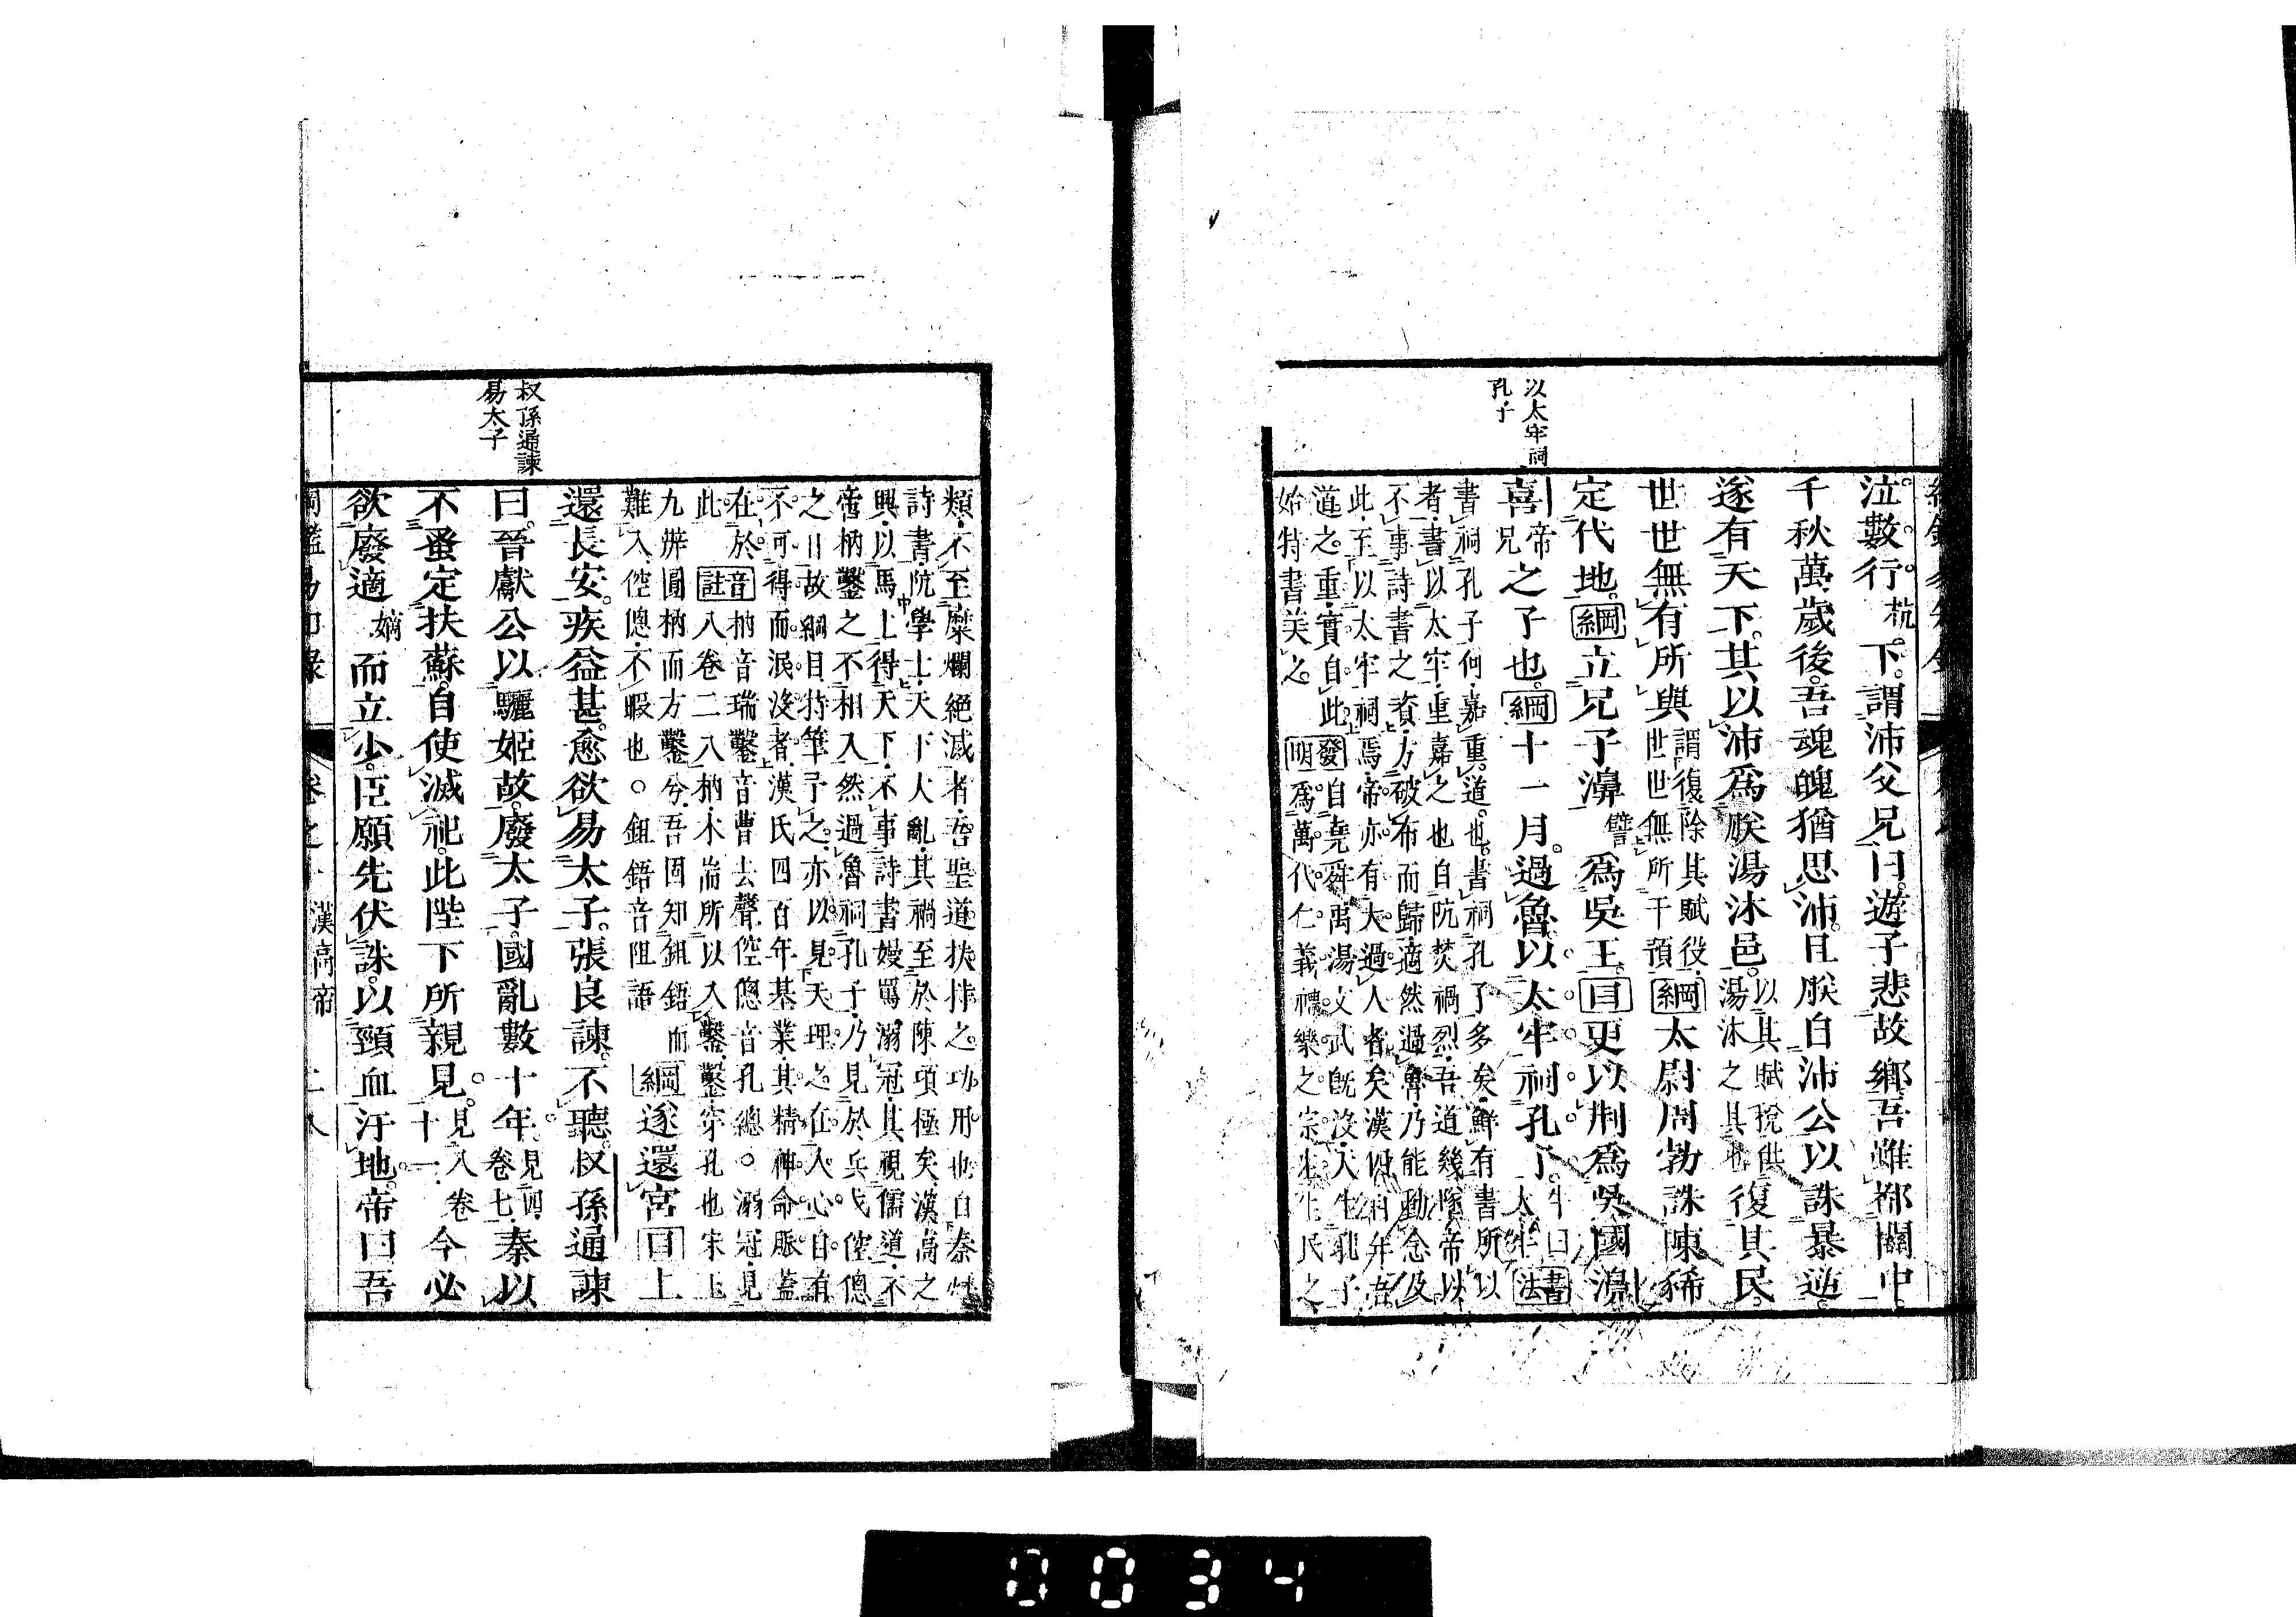 以太牢祠
孔子
泣數行杭下謂沛父兄曰遊子悲故鄉吾雖都關中
千秋萬歲後吾魂魄猶思沛且朕自沛公以誅暴逆
遂有天下其以沛爲朕湯沐邑以其賦稅供湯沐之具也復其民
世世無有所與謂復除其賦役世世無所干預綱太尉周勃誅陳豨
定代地綱立兄子濞讐爲吳王目更以荆爲吳國濞
喜帝兄之子也綱十一月過魯以太牢祠孔子牛曰太牢書法
書祠孔子何嘉重道也書祠孔子多矣鮮有書所以
者書以太牢重嘉之也自阬焚禍烈吾道幾墜帝以
不事詩書之資方破布而歸適然過魯乃能動念及
此至以太牢祠焉帝亦有大過人者矣漢四百年吾
道之重實自此發明自堯舜禹湯文武旣没天生孔子
始特書美之爲萬代仁義禮樂之宗生民之
叔孫通諫
易太子
類不至糜爛絕滅者吾聖道扶持之功用也自秦焚
詩書阬學士天下大亂其禍至於陳項極矣漢高之
興以馬上得天下不事詩書嫚罵溺冠其視儒道不
啻枘鑿之不相入然過魯祠孔子乃見於兵戈倥傯
之日故綱目持筆予之亦以見天理之在人心自有
不可得而泯没者漢氏四百年基業其精神命脈蓋
在於音枘音瑞鑿音曹去聲倥傯音孔總○溺冠見
此註八卷二八枘木耑所以入鑿鑿穿孔也宋玉
九辨圓枘而方鑿兮吾固知鉏鋙而
難入倥傯不暇也○鉏鋙音阻語綱遂還宮目上
還長安疾益甚愈欲易太子張良諫不聽叔孫通諫
曰晉獻公以驪姬故廢太子國亂數十年見四卷七秦以
不蚤定扶蘇自使滅祀此陛下所親見見八卷十一今必
欲廢適嫡而立少臣願先伏誅以頸血汙地帝曰吾
漢高帝